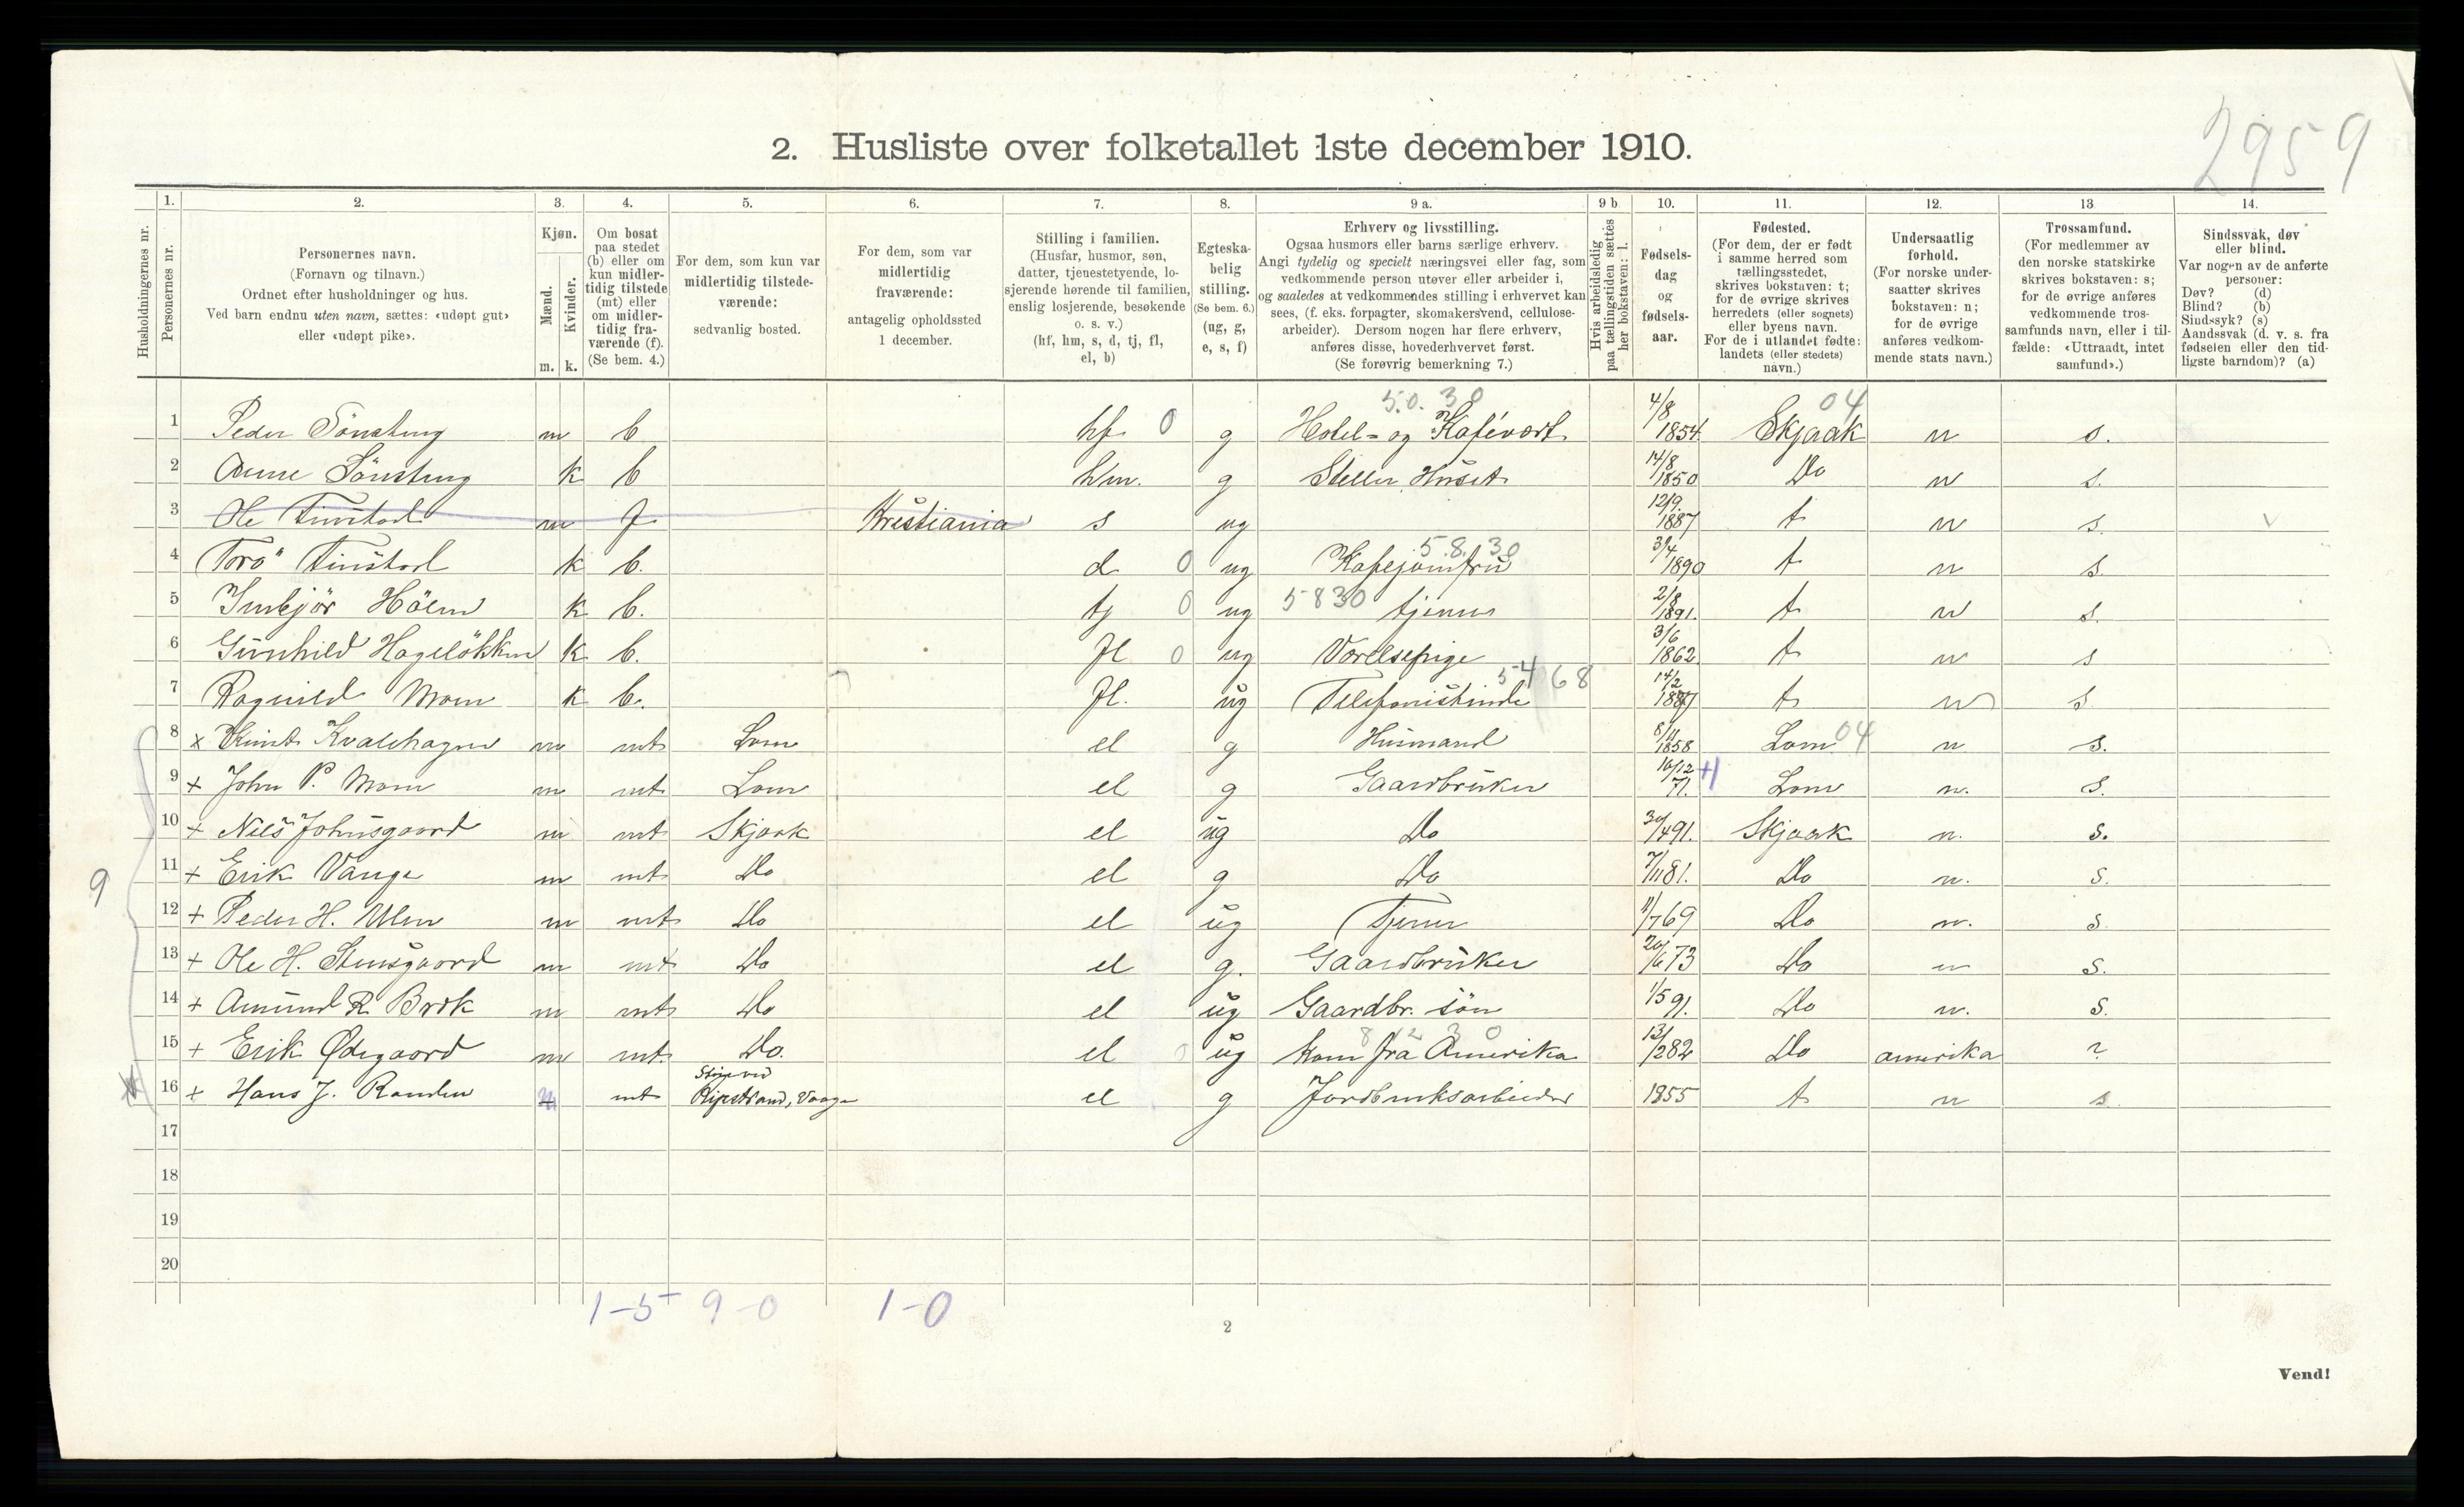 2959
2. Husliste over folketallet 1ste december 1910.
Husholdningernes nr.
1. Personernes nr.
2. Personernes navn.
(Fornavn og tilnavn.)
Ordnet efter husholdninger og hus.
Ved barn endnu uten navn, sættes: «udøpt gut»
eller «udøpt pike».
3. Kjøn.
Mænd. Kvinder.
m. k.
4. Om bosat
paa stedet
(b) eller om
kun midler-
tidig tilstede
(mt) eller
om midler-
tidig fra-
værende (f).
(Se bem. 4.)
5. For dem, som kun var
midlertidig tilstede-
værende:
sedvanlig bosted.
6. For dem, som var
midlertidig
fraværende:
antagelig opholdssted
1 december.
7. Stilling i familien.
(Husfar, husmor, søn,
datter, tjenestetyende, lo-
sjerende hørende til familien,
enslig losjerende, besøkende
o. s. v.)
(hf, hm, s, d, tj, fl,
el, b)
8. Egteska-
belig
stilling.
(Se bem. 6.)
(ug, g,
e, s, f)
9 a. Erhverv og livsstilling.
Ogsaa husmors eller barns særlige erhverv.
Angi tydelig og specielt næringsvei eller fag, som
vedkommende person utøver eller arbeider i,
og saaledes at vedkommendes stilling i erhvervet kan
sees, (f. eks. forpagter, skomakersvend, cellulose-
arbeider). Dersom nogen har flere erhverv,
anføres disse, hovederhvervet først.
(Se forøvrig bemerkning 7.)
9 b Hvis arbeidsledig
paa tællingstiden sættes
her bokstaven: l.
10. Fødsels-
dag
og
fødsels-
aar.
11. Fødested.
(For dem, der er født
i samme herred som
tællingsstedet,
skrives bokstaven: t;
for de øvrige skrives
herredets (eller sognets)
eller byens navn.
For de i utlandet fødte:
landets (eller stedets)
navn.)
12. Undersaatlig
forhold.
(For norske under-
saatter skrives
bokstaven: n;
for de øvrige
anføres vedkom-
mende stats navn.)
13 Trossamfund.
(For medlemmer av
den norske statskirke
skrives bokstaven: s;
for de øvrige anføres
vedkommende tros-
samfunds navn, eller i til-
fælde: «Uttraadt, intet
samfund».)
14. Sindssvak, døv
eller blind.
Var nogen av de anførte
personer:
Døv? (d)
Blind? (b)
Sindssyk? (s)
Aandssvak (d. v. s. fra
fødselen eller den tid-
ligste barndom)? (a)
5.0.30 04
1 Peder Sönsteng m b hf 0 g Hotel- og Kafévært 4/8 1854 Skjaak n s.
2 Anne Sönsteng k b hm. g Steller Huset 14/8 1850 Do n s.
3 Ole m f Kristiania s ug 12/9. 1887 t n s.
5.8.30
4 k b. d 0 ug Kafejomfru 3/4 1890 t n s.
5 Höem k b. tj 0 ug 5830 tjener 2/8 1891. t n s.
6 Gunhild Hageløkken k b. fl 0 ug Værelsepige 3/6 1862 t n s
5468
7 Ragnild Moen k b. fl. ug Telefonistinde 14/2 t n s
8 x Knut Kvalehagen m mt Lom el g Husmand 8/11 1858 Lom 04 n s.
9 + John P. Moen m mt Lom el g Gaardbruker 10/12 71. Lom n. s.
10 + Nils Johnsgaard m mt Skjaak el ug Do 30/4 91. Skjaak n. s.
11 + Erik Vange m mt Do el g Do 7/11 81. Do n. s.
12 + Peder H. Ulen m mt Do el ug Tjener 11/7 69 Do n. s.
13 + Ole H. Stensgaard m mt Do el g. Gaardbruker 20/6 73 Do n s.
14 + Amund R. m mt Do el ug Gaardbr. sön 1/5 91. Do n. s.
8 2 3 0
15 + Erik Ødegaard m mt. Do. el ug kom fra Amerika 13/2 82 Do amerika ?
16 + Hans J. Randen m mt el g Jordbruksarbeider 1855 t n s.
9
17
18
19
20
1-5 9-0 1-0
2
Vend!